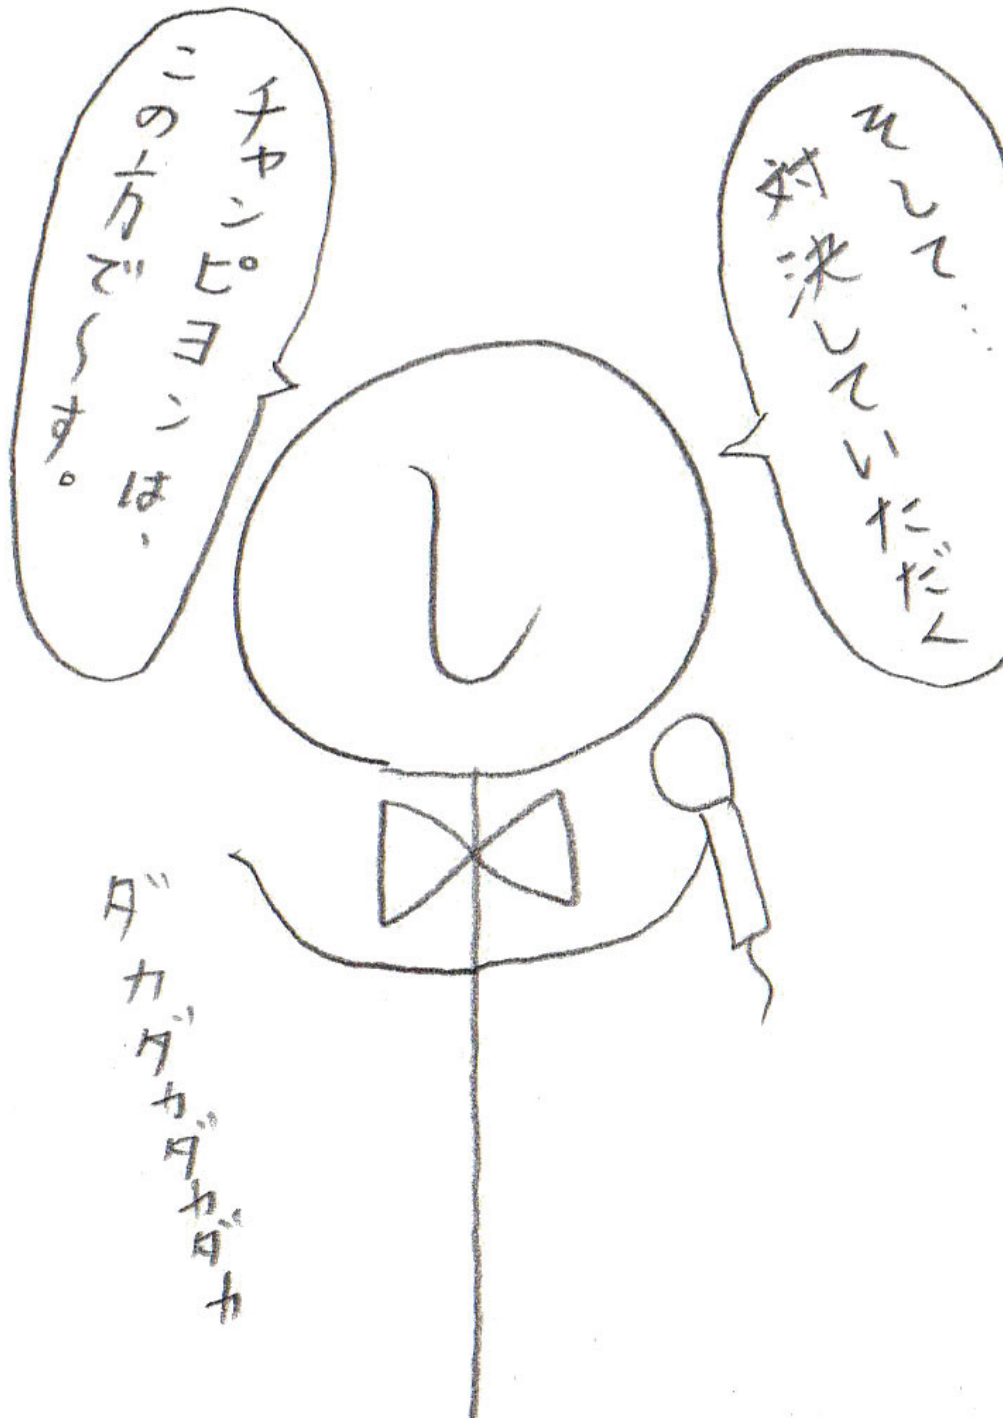 そして…
対決していただく
チャンピヨンは、
この方で〜す。
し
ダカダカダカダカ